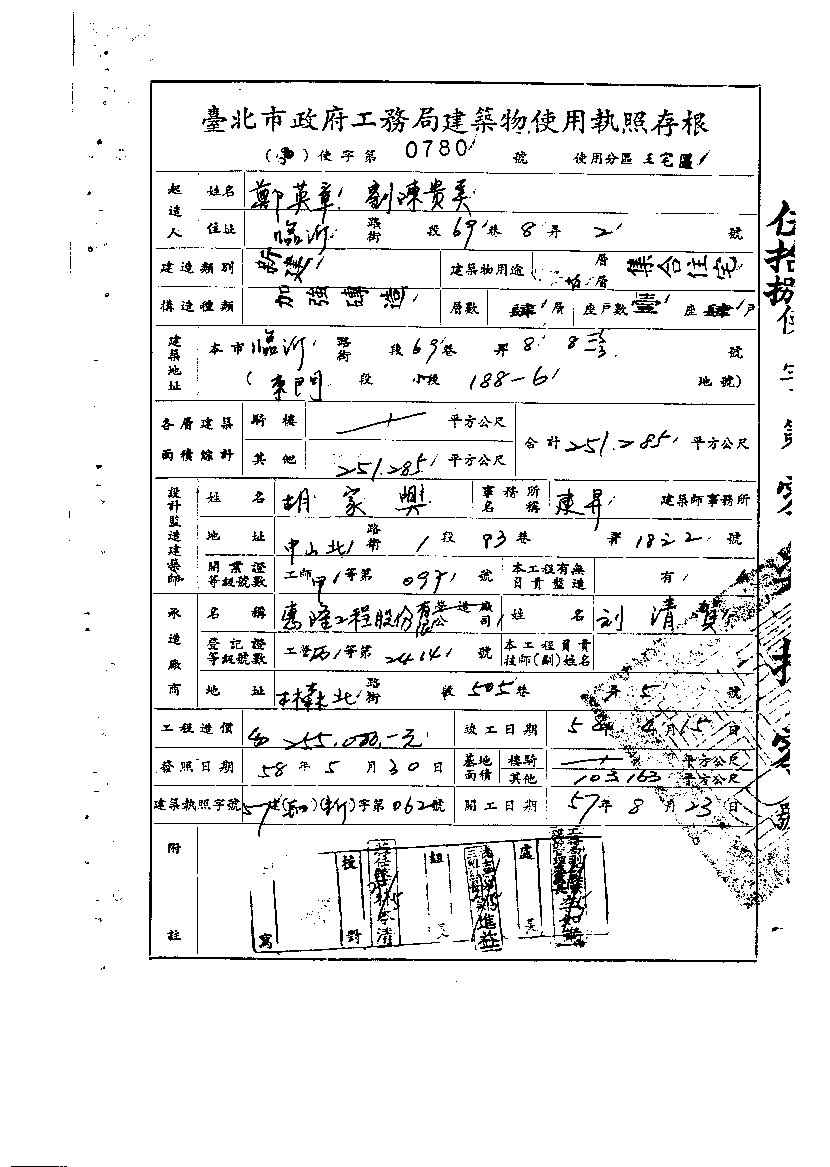 臺北市政府工務局建築物使用執照存根
使字第 0780 號 使用分區 住宅區
起造人 姓名 鄭英章 劉陳貴美
住址 臨沂 路街 段 69 巷 8 弄 2 號
建造類別 新建 建築物用途 層 層 集合住宅
構造種類 加強磚造 層數 肆 層 座戶數 壹 座 肆 戶
建築地址 本市 臨沂 路街 段 69 巷 弄 8 8 號
(東門 段 小段 188-6 地號)
各層建築面積綜計 騎樓 平方公尺 合計 251.285 平方公尺
其他 251.285 平方公尺
設計監造建築師 姓名 胡家興 事務所名稱 東昇 建築師事務所
地址 中山北 路街 1 段 83 巷 弄 1822 號
開業證等級號數 工師 甲 等第 0971 號 本工程有無負責監造 有
承造廠商 名稱 惠隆工程股份有限公司 營造廠 姓名 刘清賀
登記證等級號數 工營 丙 等第 2414 號 本工程負責技師(副)姓名
地址 林森北 路街 段 505 巷 弄 5 號
工程造價 255,000.-元 竣工日期 58 年 4 月 15 日
發照日期 58 年 5 月 30 日 基地面積 樓騎 平方公尺
其他 103.163 平方公尺
建築執照字號 57 建( )( )字第 062 號 開工日期 57 年 8 月 23 日
附註 寫 校對 組長 處長